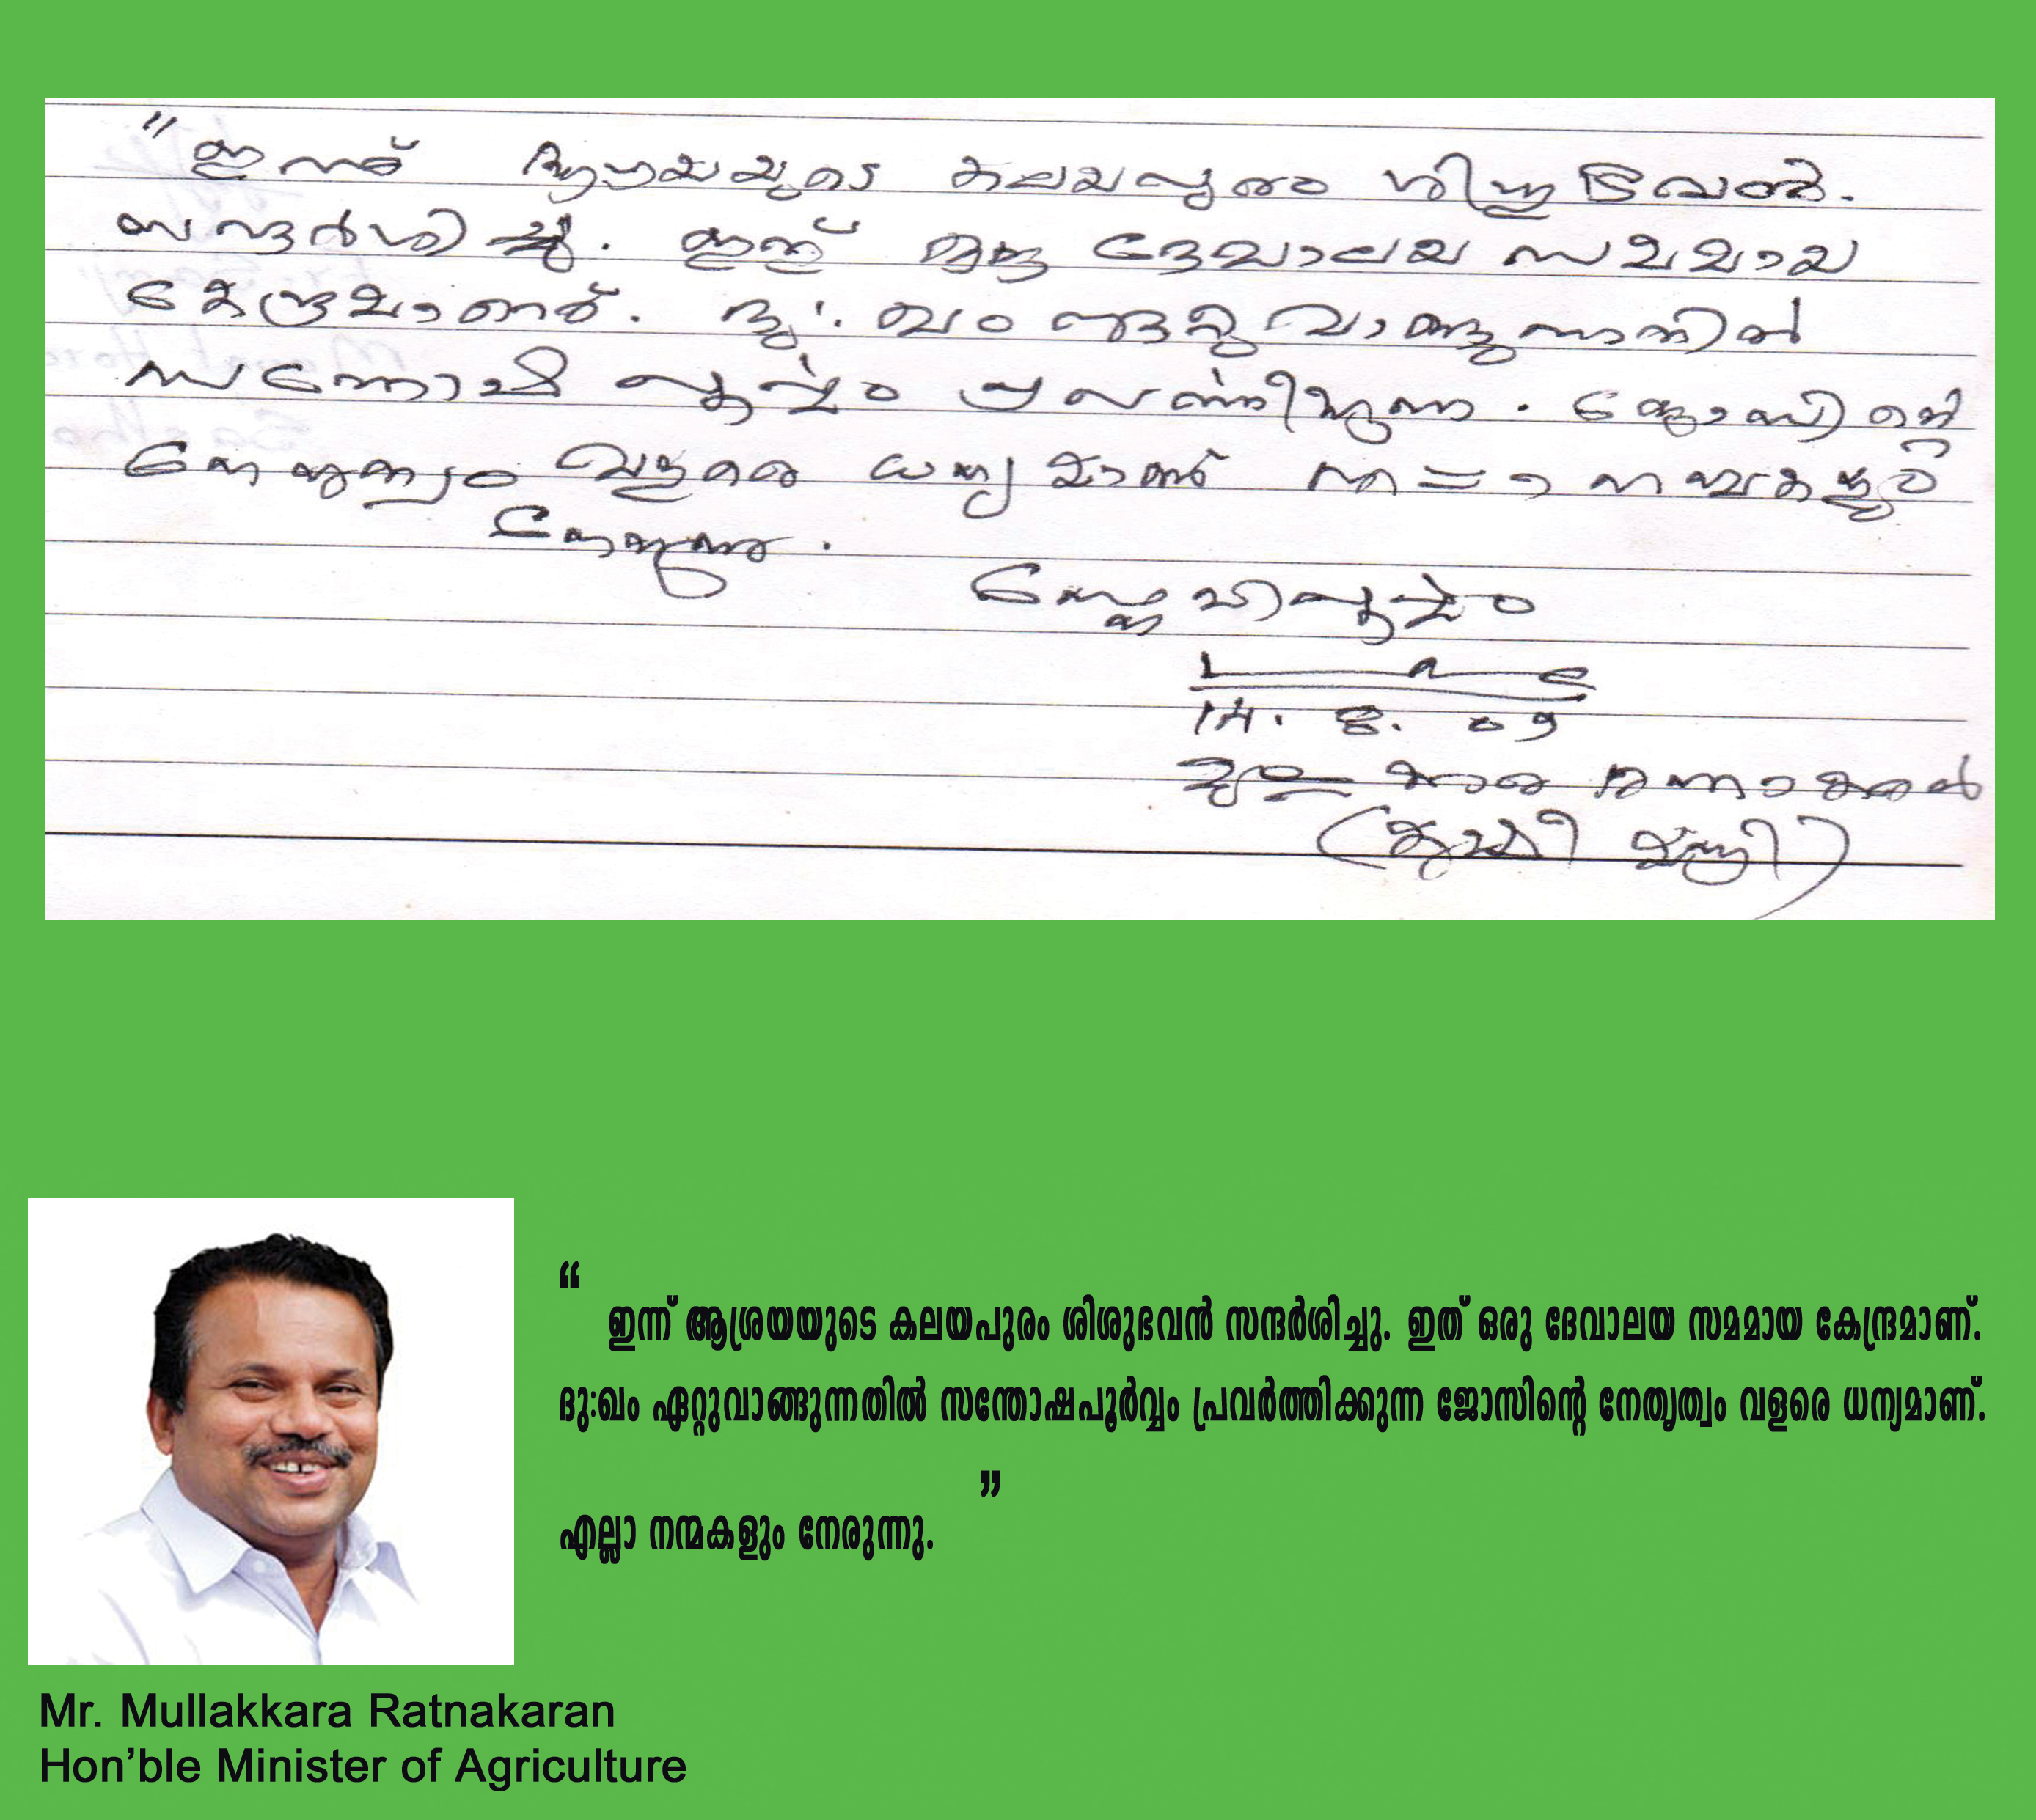 " ഇന്ന് ആശ്രയയുടെ കലയപുരം ശിശുഭവൻ.
സന്ദർശിച്ചു. ഇത് ഒരു ദേവാലയ സമമായ
കേന്ദ്രമാണ്. ദു:ഖം ഏറ്റുവാങ്ങുന്നതിൽ
സന്തോഷ പൂർവ്വം പ്രവർത്തിക്കുന്ന. ജോസിന്റെ
നേതൃത്വം വളരെ ധന്യമാണ് എല്ലാ നന്മകളും
നേരുന്നു.
സ്നേഹപൂർവ്വം
14. 8. 09
മുല്ലക്കര രത്നാകരൻ
(കൃഷി മന്ത്രി)
“ ഇന്ന് ആശ്രയയുടെ കലയപുരം ശിശുഭവൻ സന്ദർശിച്ചു. ഇത് ഒരു ദേവാലയ സമമായ കേന്ദ്രമാണ്.
ദു:ഖം ഏറ്റുവാങ്ങുന്നതിൽ സന്തോഷപൂർവ്വം പ്രവർത്തിക്കുന്ന ജോസിന്റെ നേതൃത്വം വളരെ ധന്യമാണ്.
എല്ലാ നന്മകളും നേരുന്നു. ”
Mr. Mullakkara Ratnakaran
Hon’ble Minister of Agriculture